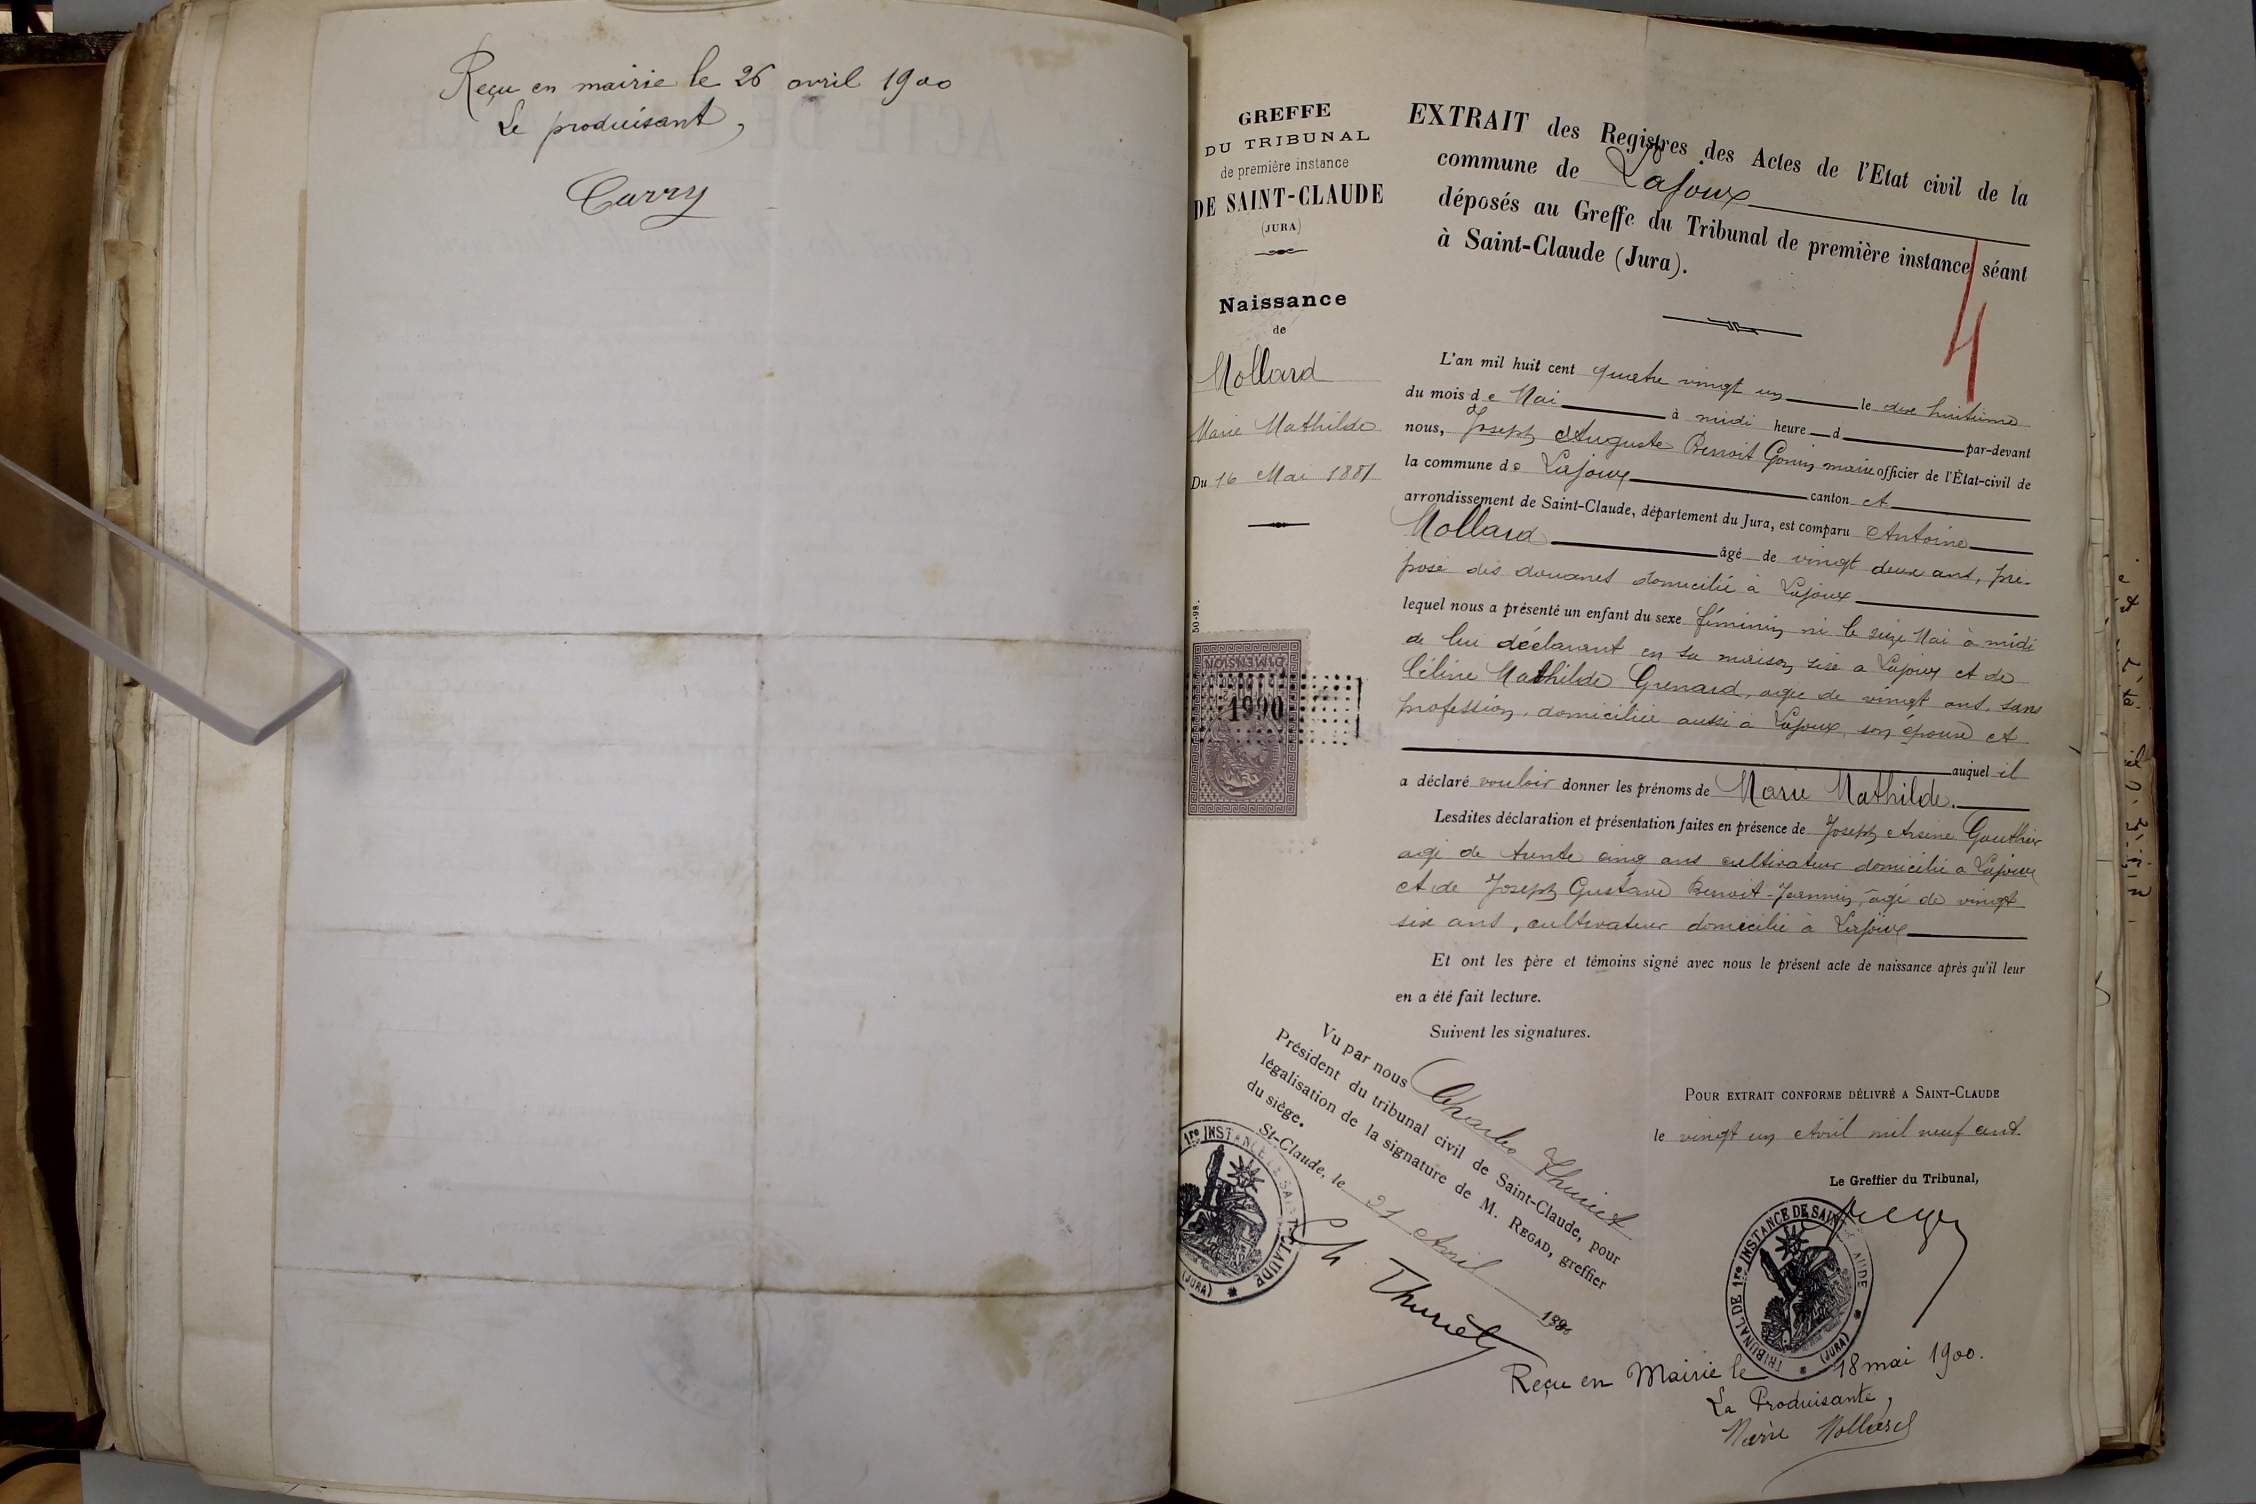 Reçu en mairie le 26 avril 1900
Le produisant,
Carry
GREFFE
DU TRIBUNAL
de première instance
DE SAINT-CLAUDE
(JURA)
Naissance
de
Mollard
Marie Mathilde
Du 16 Mai 1881
50-98.
DIMENSION
1900
EXTRAIT des Registres des Actes de l'Etat civil de la
commune de Lajoux
déposés au Greffe du Tribunal de première instance séant
à Saint-Claude (Jura).
4
L'an mil huit cent quatre vingt un le dix huitième
du mois de Mai à midi heure d par-devant
nous, Joseph Auguste Benoit Gonin maire officier de l'État-civil de
la commune de Lajoux canton et
arrondissement de Saint-Claude, département du Jura, est comparu Antoine
Mollard âgé de vingt deux ans, pré-
posé des douanes domicilié à Lajoux
lequel nous a présenté un enfant du sexe féminin né le seize Mai à midi
de lui déclarant en sa maison sise a Lajoux et de
Céline Mathilde Grenard, agée de vingt ans, sans
profession, domiciliée aussi à Lajoux, son épouse et
auquel il
a déclaré vouloir donner les prénoms de Marie Mathilde.
Lesdites déclaration et présentation faites en présence de Joseph Arsène Gauthier
agé de trente cinq ans cultivateur domicilié a Lajoux
et de Joseph Gustave Benoit-Jeannin, âgé de vingt
six ans, cultivateur domicilié à Lajoux
Et ont les père et témoins signé avec nous le présent acte de naissance après qu'il leur
en a été fait lecture.
Suivent les signatures.
Vu par nous Charles Thuriet
Président du tribunal civil de Saint-Claude, pour
légalisation de la signature de M. REGAD, greffier
du siège.
St-Claude, le 21 Avril 1900
Ch Thuriet
1re INSTANCE DE SAINT-CLAUDE
(JURA)
POUR EXTRAIT CONFORME DÉLIVRÉ A SAINT-CLAUDE
le vingt un Avril mil neuf cent
Le Greffier du Tribunal,
TRIBUNAL DE 1re INSTANCE DE SAINT CLAUDE
(JURA)
Reçu en Mairie le 18 mai 1900.
La Produisante,
Marie Mollard